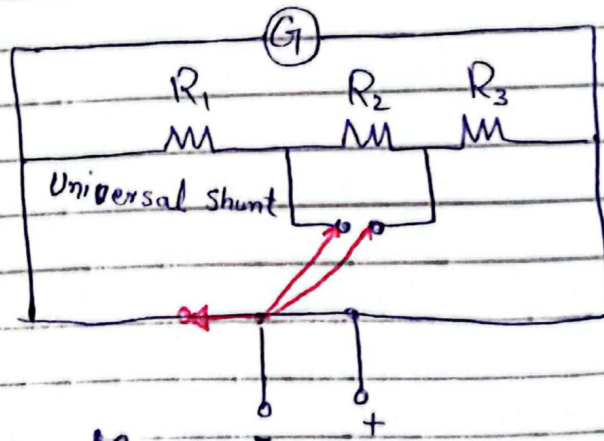 G
R₁ R₂ R₃
Universal Shunt
- +